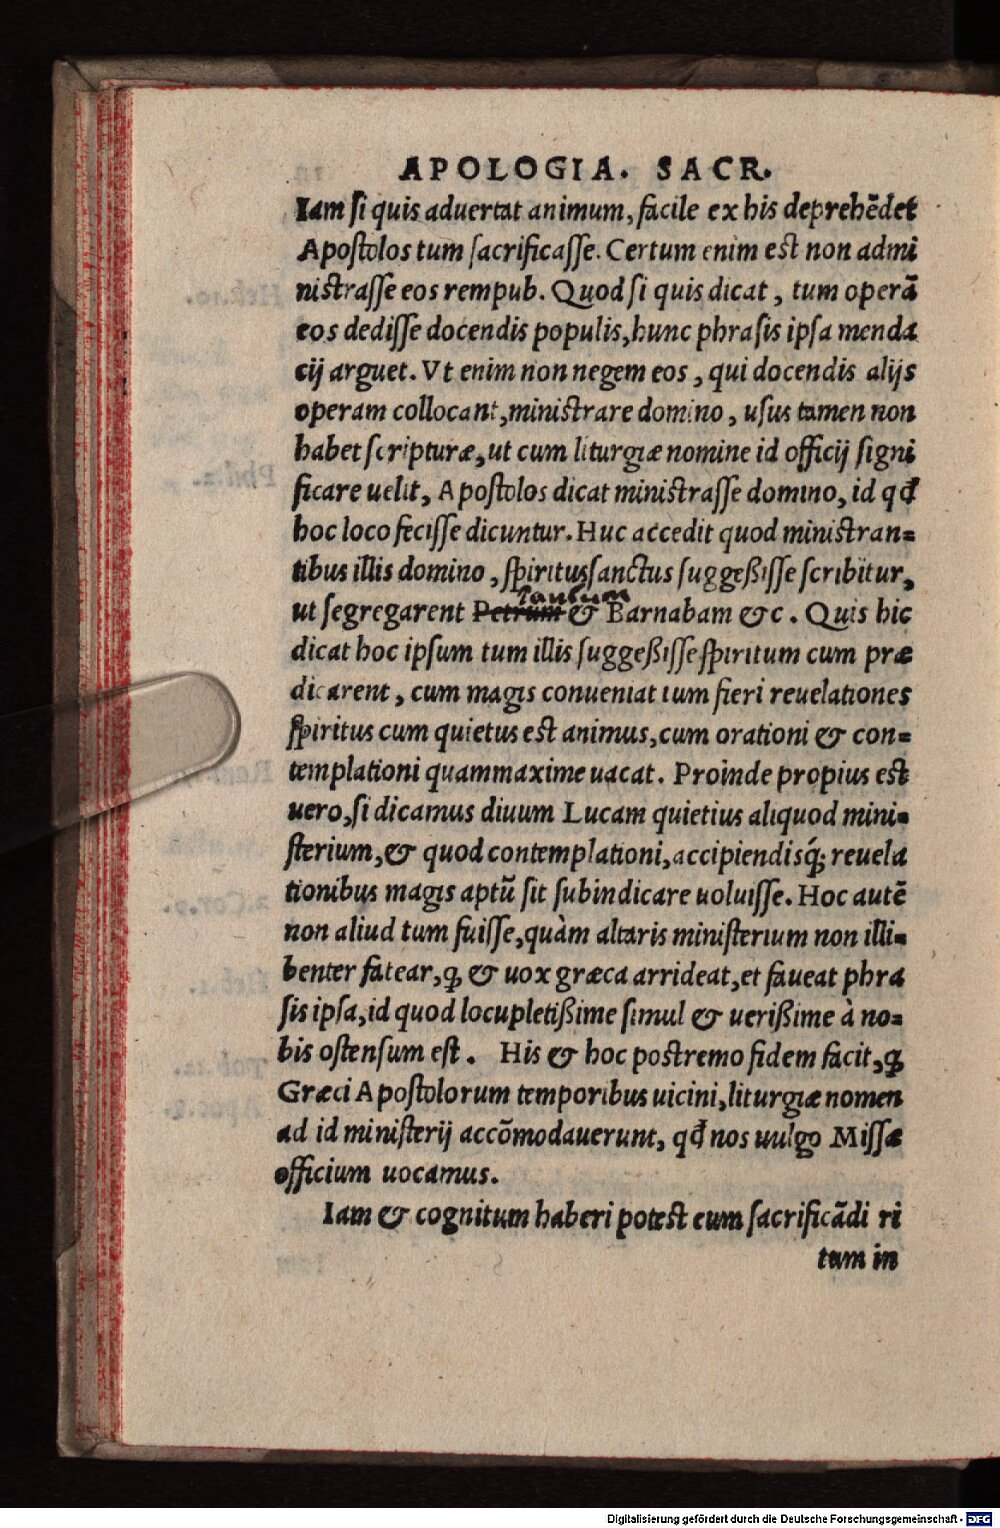 APOLOGIA. SACR.
Iam ſi quis aduertat animum, facile ex his deprehēdet
Apoſtolos tum ſacrificaſſe. Certum enim est non admi
niſtraſſe eos rempub. Quod ſi quis dicat, tum operā
eos dediſſe docendis populis, hunc phraſis ipſa menda
cij arguet. Vt enim non negem eos, qui docendis alijs
operam collocant, miniſtrare domino, uſus tamen non
habet ſcripturæ, ut cum liturgiæ nomine id officij ſigni
ficare uelit, Apoſtolos dicat miniſtraſſe domino, id qđ
hoc loco feciſſe dicuntur. Huc accedit quod miniſtran=
tibus illis domino, ſpiritus ſanctus ſuggeßiſſe ſcribitur,
Paulum
ut ſegregarent Petrum & Barnabam &c. Quis hic
dicat hoc ipſum tum illis ſuggeßiſſe ſpiritum cum præ
dicarent, cum magis conueniat tum fieri reuelationes
ſpiritus cum quietus est animus, cum orationi & con=
templationi quammaxime uacat. Proinde propius est
uero, ſi dicamus diuum Lucam quietius aliquod mini=
ſterium, & quod contemplationi, accipiendisq́; reuela
tionibus magis aptū ſit ſubindicare uoluiſſe. Hoc autē
non aliud tum fuiſſe, quàm altaris miniſterium non illi=
benter fatear, ꝙ & uox græca arrideat, et faueat phra
ſis ipſa, id quod locupletißime ſimul & uerißime à no=
bis oſtenſum eſt. His & hoc poſtremo fidem facit, ꝙ
Græci Apoſtolorum temporibus uicini, liturgiæ nomen
ad id miniſterij accōmodauerunt, qđ nos uulgo Miſſæ
officium uocamus.
Iam & cognitum haberi potest eum ſacrificādi ri
tum in
Digitalisierung gefördert durch die Deutsche Forschungsgemeinschaft - DFG